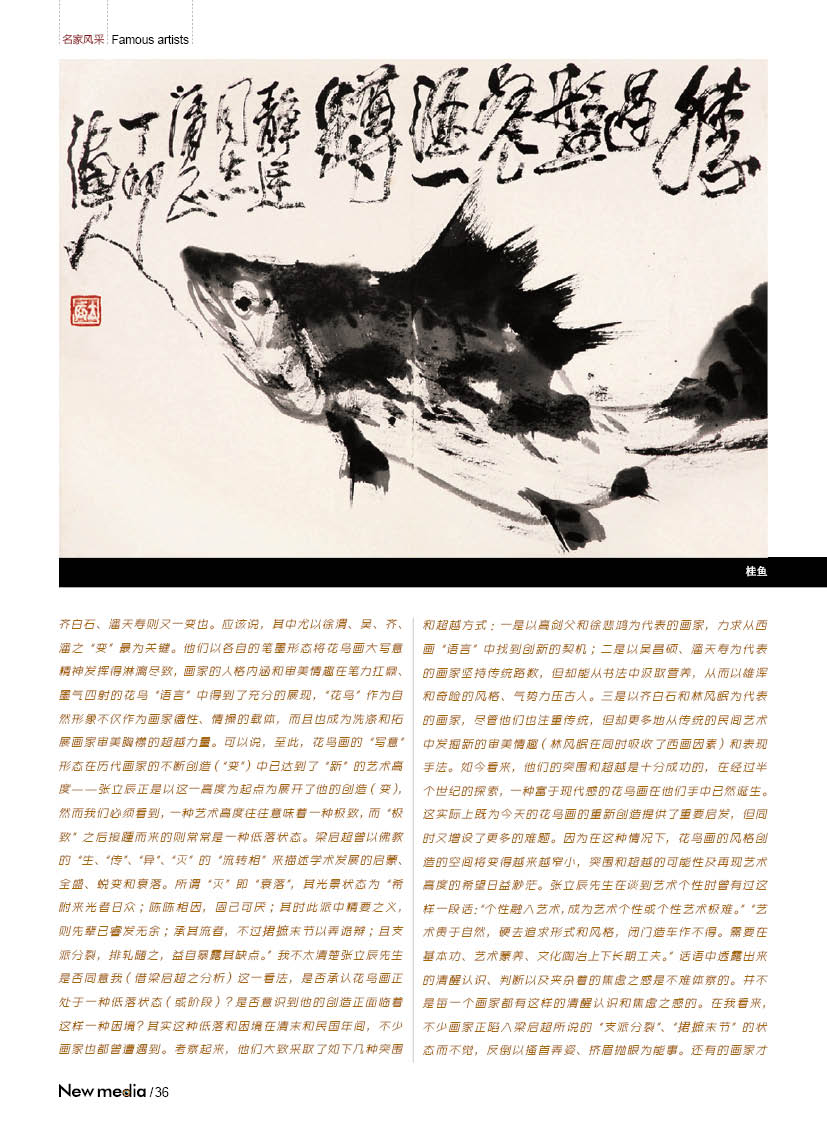 名家风采 Famous artists
桂鱼
齐白石、潘天寿则又一变也。应该说，其中尤以徐渭、吴、齐、
潘之“变”最为关键。他们以各自的笔墨形态将花鸟画大写意
精神发挥得淋漓尽致，画家的人格内涵和审美情趣在笔力扛鼎、
墨气四射的花鸟“语言”中得到了充分的展现，“花鸟”作为自
然形象不仅作为画家德性、情操的载体，而且也成为洗涤和拓
展画家审美胸襟的超越力量。可以说，至此，花鸟画的“写意”
形态在历代画家的不断创造（“变”）中已达到了“新”的艺术高
度——张立辰正是以这一高度为起点为展开了他的创造（变），
然而我们必须看到，一种艺术高度往往意味着一种极致，而“极
致”之后接踵而来的则常常是一种低落状态。梁启超曾以佛教
的“生、“传”、“异”、“灭”的“流转相”来描述学术发展的启蒙、
全盛、蜕变和衰落。所谓“灭”即“衰落”，其光景状态为“希
附来光者日众；陈陈相因，固己可厌；其时此派中精要之义，
则先辈己睿发无余；承其流者，不过捃摭末节以弄诡辩；且支
派分裂，排轧随之，益自暴露其缺点。”我不太清楚张立辰先生
是否同意我（借梁启超之分析）这一看法，是否承认花鸟画正
处于一种低落状态（或阶段）？是否意识到他的创造正面临着
这样一种困境？其实这种低落和困境在清末和民国年间，不少
画家也都曾遭遇到。考察起来，他们大致采取了如下几种突围
和超越方式：一是以高剑父和徐悲鸿为代表的画家，力求从西
画“语言”中找到创新的契机；二是以吴昌硕、潘天寿为代表
的画家坚持传统路数，但却能从书法中汲取营养，从而以雄浑
和奇险的风格、气势力压古人。三是以齐白石和林风眠为代表
的画家，尽管他们也注重传统，但却更多地从传统的民间艺术
中发掘新的审美情趣（林风眠在同时吸收了西画因素）和表现
手法。如今看来，他们的突围和超越是十分成功的，在经过半
个世纪的探索，一种富于现代感的花鸟画在他们手中已然诞生。
这实际上既为今天的花鸟画的重新创造提供了重要启发，但同
时又增设了更多的难题。因为在这种情况下，花鸟画的风格创
造的空间将变得越来越窄小，突围和超越的可能性及再现艺术
高度的希望日益渺茫。张立辰先生在谈到艺术个性时曾有过这
样一段话：“个性融入艺术，成为艺术个性或个性艺术极难。”“艺
术贵于自然，硬去追求形式和风格，闭门造车作不得。需要在
基本功、艺术素养、文化陶冶上下长期工夫。”话语中透露出来
的清醒认识、判断以及夹杂着的焦虑之感是不难体察的。并不
是每一个画家都有这样的清醒认识和焦虑之感的。在我看来，
不少画家正陷入梁启超所说的“支派分裂”、“捃摭末节”的状
态而不觉，反倒以搔首弄姿、挤眉抛眼为能事。还有的画家才
New media /36